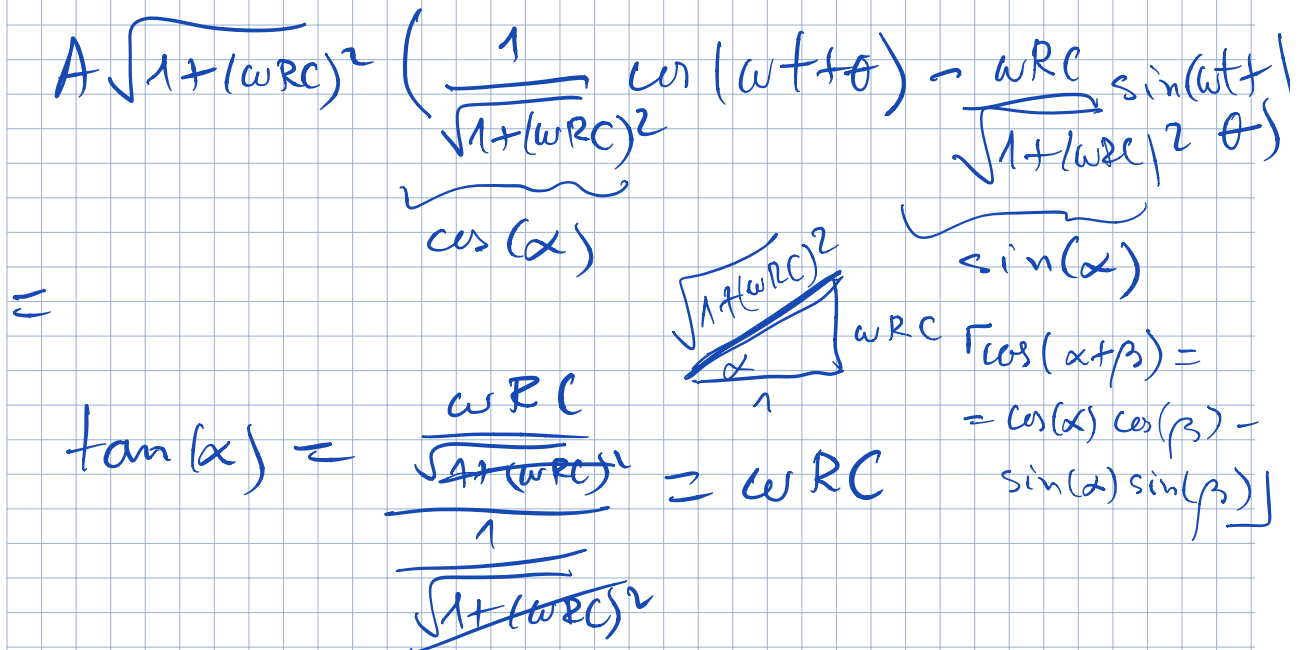 A√(1+(ωRC)²) ( 1/√(1+(ωRC)²) cos(ωt+θ) - ωRC/√(1+(ωRC)²) sin(ωt+θ)
cos(α)
sin(α)
=
√(1+(ωRC)²)
ωRC
α
1
⌈cos(α+β) =
= cos(α) cos(β) -
sin(α) sin(β)⌋
tan(α) = (ωRC/√(1+(ωRC)²))/(1/√(1+(ωRC)²)) = ωRC